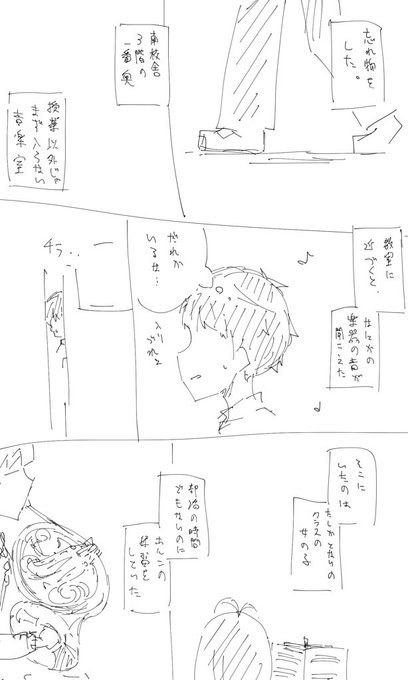 忘れ物を
した。
南校舎
3階の
一番奥
授業以外じゃ
まず入らない
音楽室
教室に
近づくと、
なにかの
楽器の音が
聞こえた
だれか
いるな…
入り
づれぇ
チラ…
そこに
いたのは
たしかとなりの
クラスの
女の子
部活の時間
でもないのに
ホルンの
練習を
していた